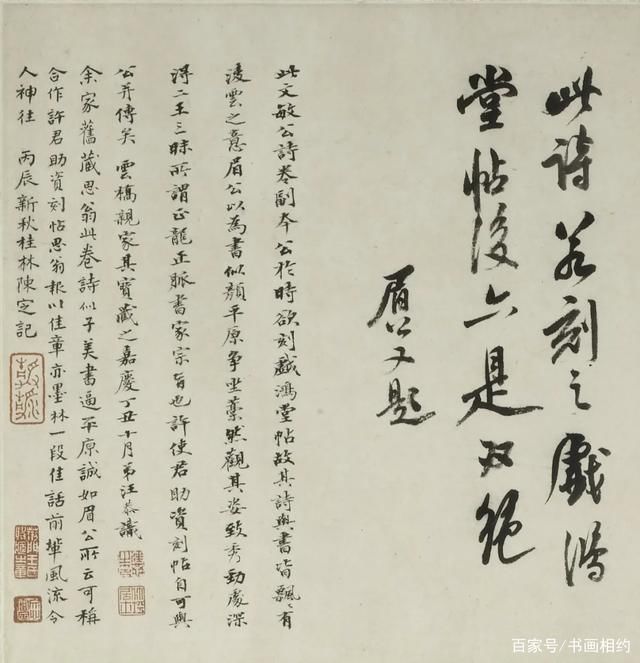 此詩若刻之戲鴻
堂帖後亦是双絕
眉公又題
此文敏公詩卷副本公於時欲刻戲鴻堂帖故其詩與書皆飄飄有
淩雲之意眉公以為書似顏平原爭坐藁然觀其姿致秀勁處深
得二王三昧所謂正龍正脈書家宗旨也許使君助資刻帖自可與
公并傳矣 雲橋親家其寶藏之嘉慶丁丑十月弟汪恭識
余家舊藏思翁此卷詩似子美書逼平原誠如眉公所云可稱
合作許君助資刻帖思翁報以佳章亦墨林一段佳話前輩風流令
人神往 丙辰新秋桂林陳定記
百家号/书画相约